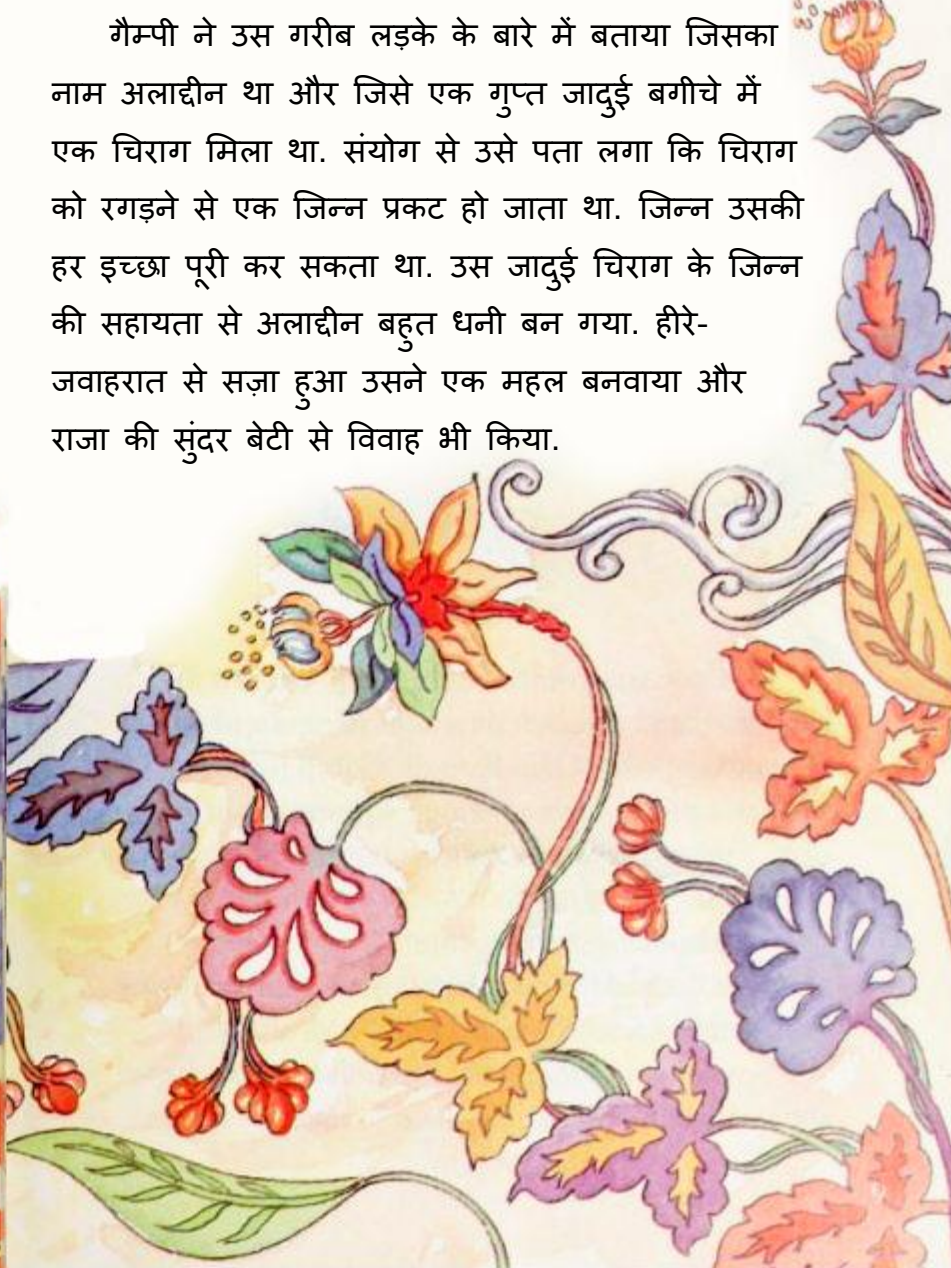 गैम्पी ने उस गरीब लड़के के बारे में बताया जिसका
नाम अलाद्दीन था और जिसे एक गुप्त जादुई बगीचे में
एक चिराग मिला था. संयोग से उसे पता लगा कि चिराग
को रगड़ने से एक जिन्न प्रकट हो जाता था. जिन्न उसकी
हर इच्छा पूरी कर सकता था. उस जादुई चिराग के जिन्न
की सहायता से अलाद्दीन बहुत धनी बन गया. हीरे-
जवाहरात से सज़ा हुआ उसने एक महल बनवाया और
राजा की सुंदर बेटी से विवाह भी किया.